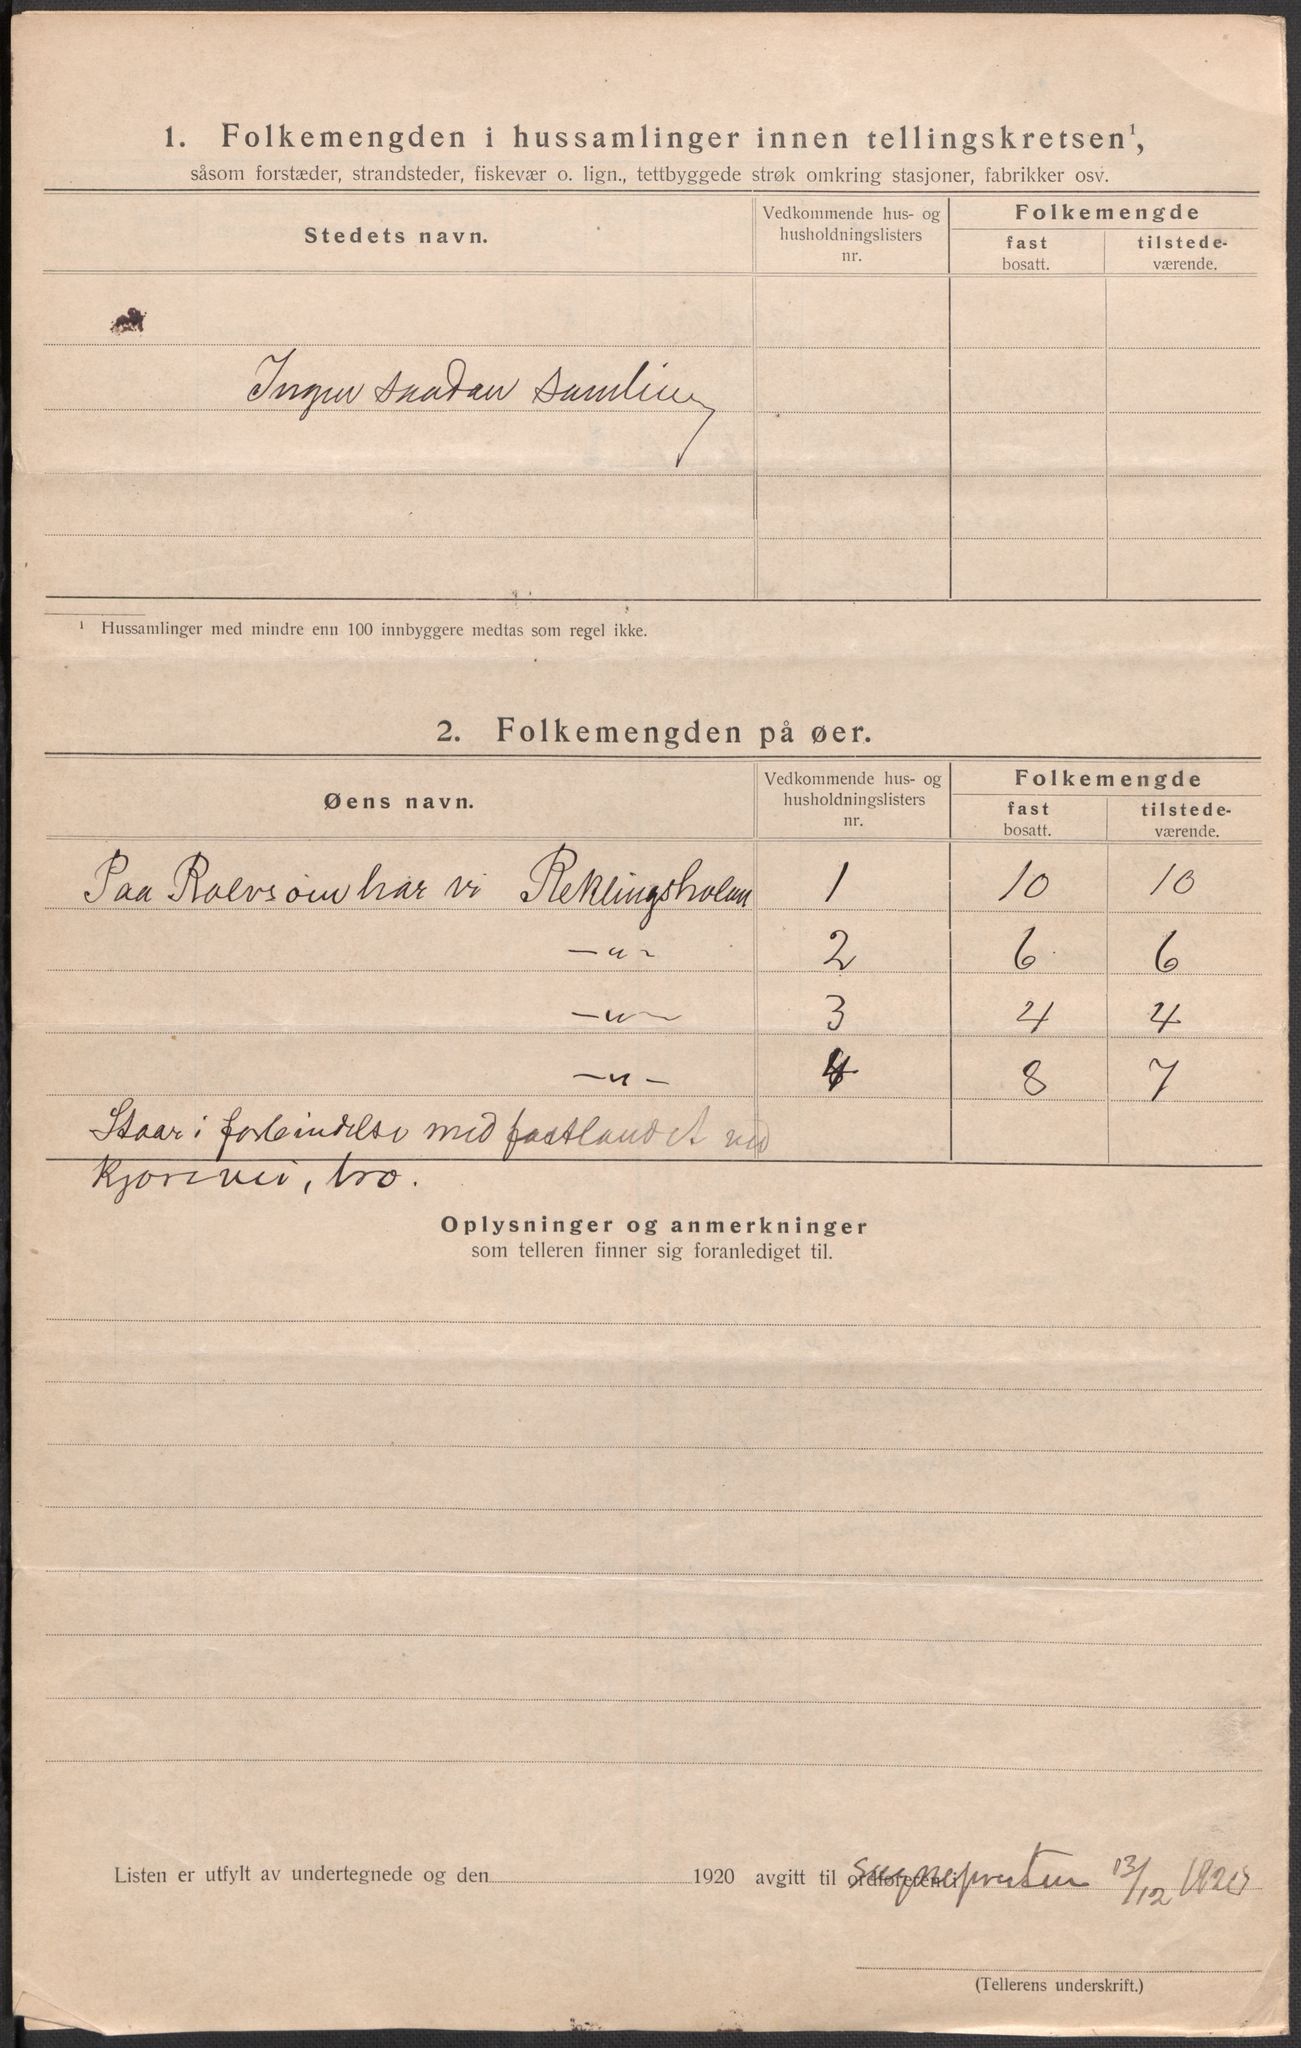 1. Folkemengden i hussamlinger innen tellingskretsen¹,
såsom forstæder, strandsteder, fiskevær o. lign., tettbyggede strøk omkring stasjoner, fabrikker osv.
Stedets navn.
Vedkommende hus- og
husholdningslisters
nr.
Folkemengde
fast
bosatt.
tilstede-
værende.
Ingen saadan samling
¹ Hussamlinger med mindre enn 100 innbyggere medtas som regel ikke.
2. Folkemengden på øer.
Øens navn.
Vedkommende hus- og
husholdningslisters
nr.
Folkemengde
fast
bosatt.
tilstede-
værende.
Paa Rolvsøen har vi Reklingsholen 1 10 10
—〃— 2 6 6
—〃— 3 4 4
—〃— 4 8 7
Staar i forbindelse med fastlandet ved
Kjørevei, bro.
Oplysninger og anmerkninger
som telleren finner sig foranlediget til.
Listen er utfylt av undertegnede og den 1920 avgitt til ordføreren i sognepresten 13/12 1920
(Tellerens underskrift.)